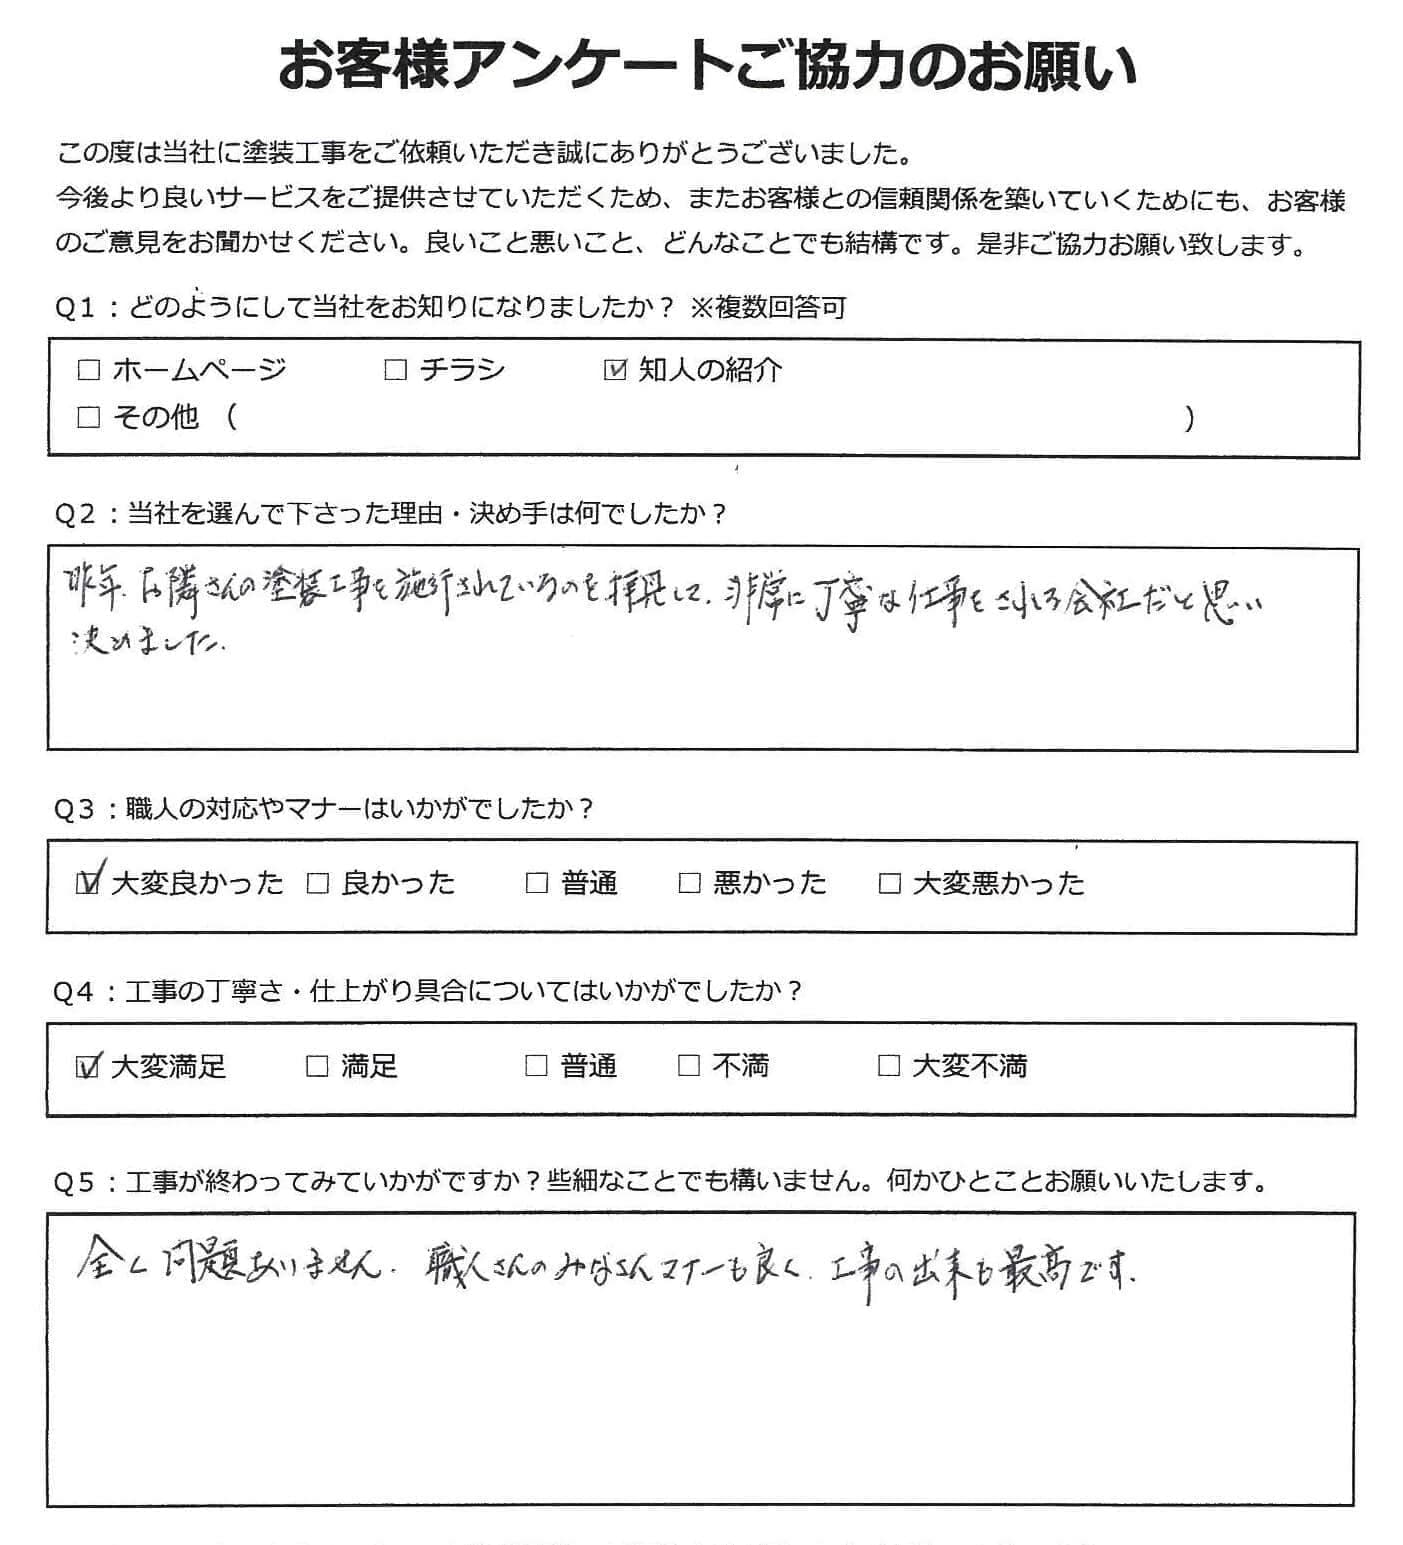 お客様アンケートご協力のお願い
この度は当社に塗装工事をご依頼いただき誠にありがとうございました。
今後より良いサービスをご提供させていただくため、またお客様との信頼関係を築いていくためにも、お客様
のご意見をお聞かせください。良いこと悪いこと、どんなことでも結構です。是非ご協力お願い致します。
Q1：どのようにして当社をお知りになりましたか？ ※複数回答可
□ ホームページ □ チラシ ☑ 知人の紹介
□ その他 （ ）
Q2：当社を選んで下さった理由・決め手は何でしたか？
昨年、お隣さんの塗装工事を施行されているのを拝見して、非常に丁寧な仕事をされる会社だと思い
決めました。
Q3：職人の対応やマナーはいかがでしたか？
☑ 大変良かった □ 良かった □ 普通 □ 悪かった □ 大変悪かった
Q4：工事の丁寧さ・仕上がり具合についてはいかがでしたか？
☑ 大変満足 □ 満足 □ 普通 □ 不満 □ 大変不満
Q5：工事が終わってみていかがですか？些細なことでも構いません。何かひとことお願いいたします。
全く問題ありません。職人さんのみなさんマナーも良く、工事の出来も最高です。